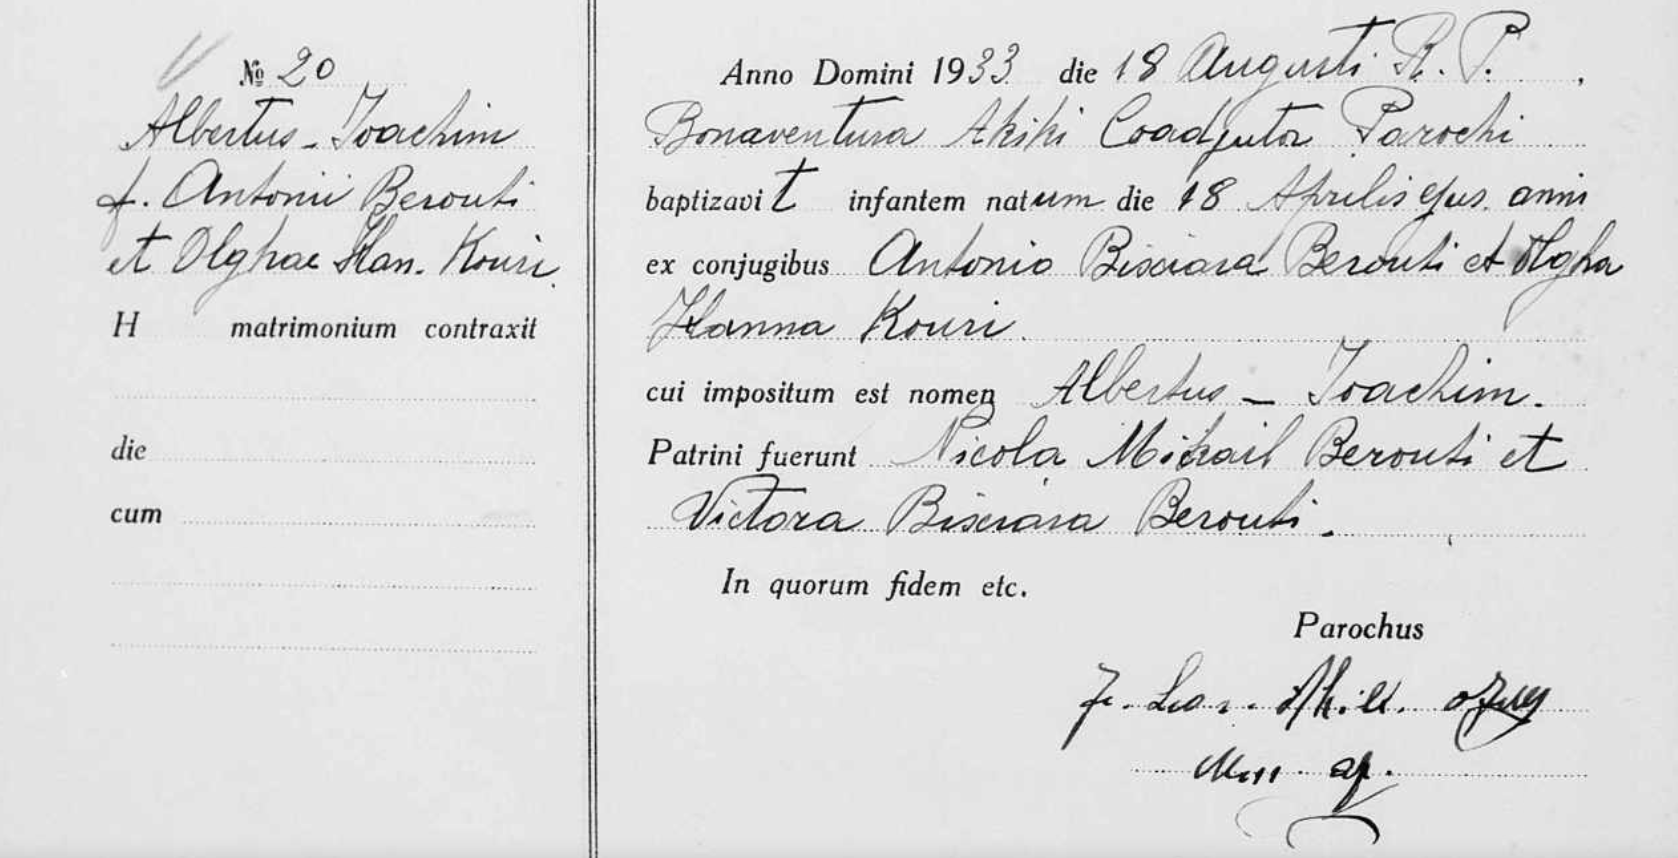 № 20
Albertus - Joachim
f. Antonii Berouti
et Olghae Han. Kouri.
H matrimonium contraxit
die
cum
Anno Domini 1933. die 18 Augusti R. P.
Bonaventura Akiki Coadjutor Parochi
baptizavit infantem natum die 18 Aprilis ejus. anni
ex conjugibus Antonio Bisciara Berouti et Olgha
Hanna Kouri.
cui impositum est nomen Albertus - Joachim.
Patrini fuerunt Nicola Mikail Berouti et
Victora Bisciara Berouti.
In quorum fidem etc.
Parochus
ap.